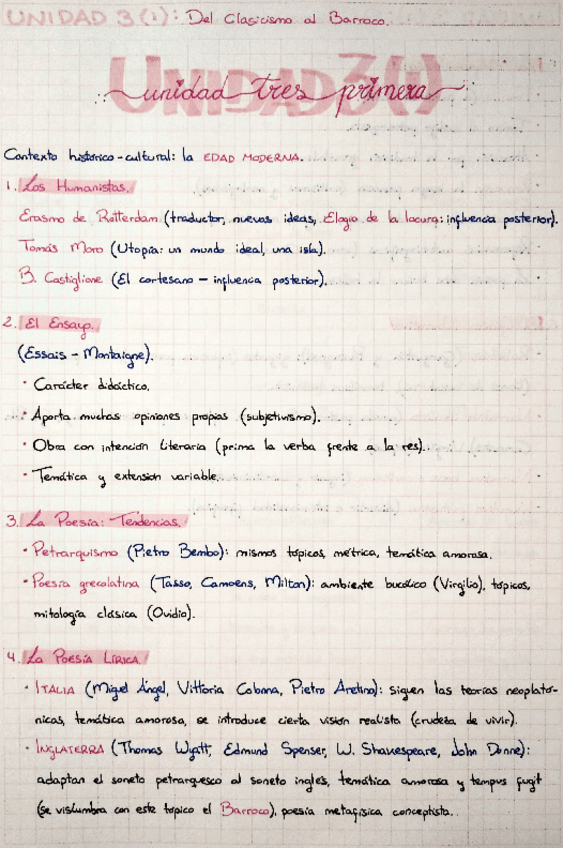 UNIDAD 3 (1): Del Clasicismo al Barroco.
UNIDAD 3 (1)
unidad tres primera
Contexto histórico-cultural: la EDAD MODERNA.
1. Los Humanistas.
Erasmo de Rotterdam (traductor, nuevas ideas, Elogio de la locura: influencia posterior).
Tomás Moro (Utopía: un mundo ideal, una isla).
B. Castiglione (El cortesano - influencia posterior).
2. El Ensayo.
(Essais - Montaigne).
· Carácter didáctico.
· Aporta muchas opiniones propias (subjetivismo).
· Obra con intención literaria (prima la verba frente a la res).
· Temática y extensión variable.
3. La Poesía: Tendencias.
· Petrarquismo (Pietro Bembo): mismos tópicos, métrica, temática amorosa.
· Poesía grecolatina (Tasso, Camoens, Milton): ambiente bucólico (Virgilio), tópicos,
mitología clásica (Ovidio).
4. La Poesía Lírica.
· ITALIA (Miguel Ángel, Vittoria Colonna, Pietro Aretino): siguen las teorías neoplató-
nicas, temática amorosa, se introduce cierta visión realista (crudeza de vivir).
· INGLATERRA (Thomas Wyatt, Edmund Spenser, W. Shakespeare, John Donne):
adaptan el soneto petrarquesco al soneto inglés, temática amorosa y tempus fugit
(se vislumbra con este tópico el Barroco), poesía metafísica conceptista.